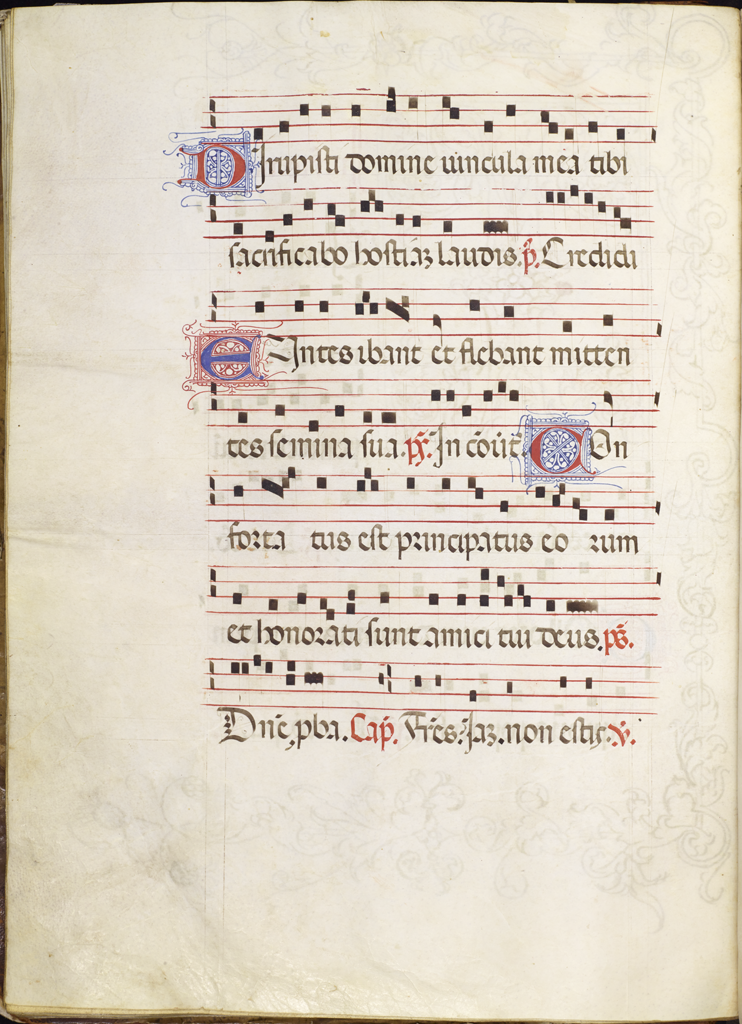 Dirupisti domine uincula mea tibi
sacrificabo hostiaꝫ laudis. p̄. Credidi
Euntes ibant et flebant mitten
tes semina sua. pș. In cōuert̄. Con
forta tus est principatus eo rum
et honorati sunt amici tui deus. pș.
Dn̄e, pba. Cap̄. Fr̄es. Jaꝫ. non estis. v̄.